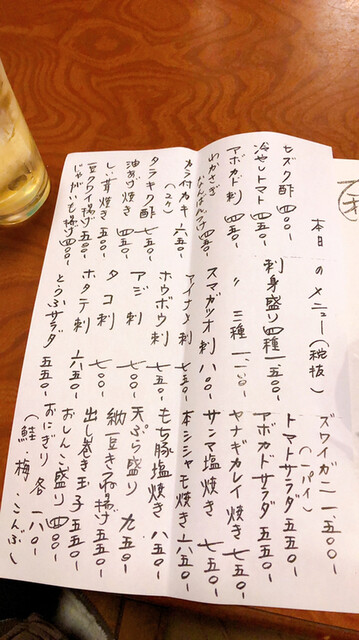 本日のメニュー（税抜）
モズク酢 四〇〇-
冷やしトマト 四五〇-
アボカド刺 四五〇-
わかさぎなんばんづけ 四五〇-
カラ付カキ（2ケ） 六五〇-
タラキク酢 七五〇-
油あげ焼き 四五〇-
しい茸焼き 五〇〇-
豆クワイ揚げ 五〇〇-
じゃがいも揚げ 四〇〇-
刺身盛り四種 一五〇〇-
〃 三種 一、一〇〇-
スマガツオ刺 八〇〇-
アイナメ刺 七五〇-
ホウボウ刺 七五〇-
アジ刺 七〇〇-
タコ刺 七〇〇-
ホタテ刺 六五〇-
とうふサラダ 五五〇-
ズワイガニ（一パイ） 一、五〇〇-
トマトサラダ 五五〇-
アボカドサラダ 五五〇-
ヤナギカレイ焼き 七五〇-
サンマ塩焼き 七五〇-
本シシャモ焼き 六五〇-
もち豚塩焼き 八五〇-
天ぷら盛り 九五〇-
納豆きつね揚げ 五五〇-
出し巻き玉子 五五〇-
おしんこ盛り 四〇〇-
おにぎり 各一八〇-
（鮭、梅、こんぶ）